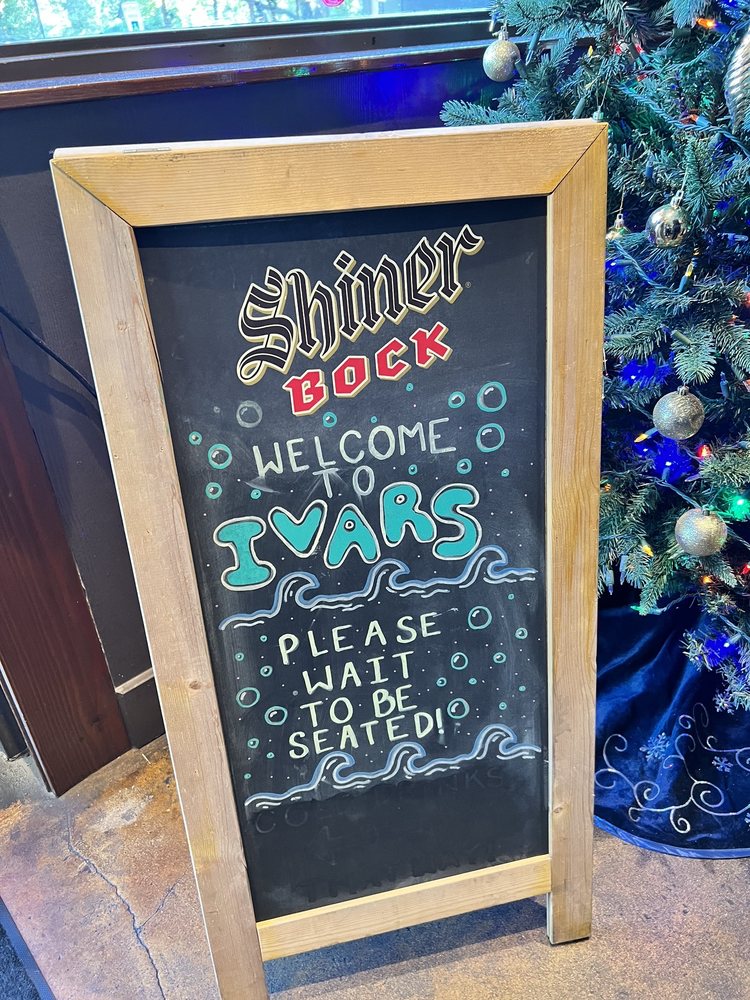 Shiner
BOCK
WELCOME
TO
IVARS
PLEASE
WAIT
TO BE
SEATED!